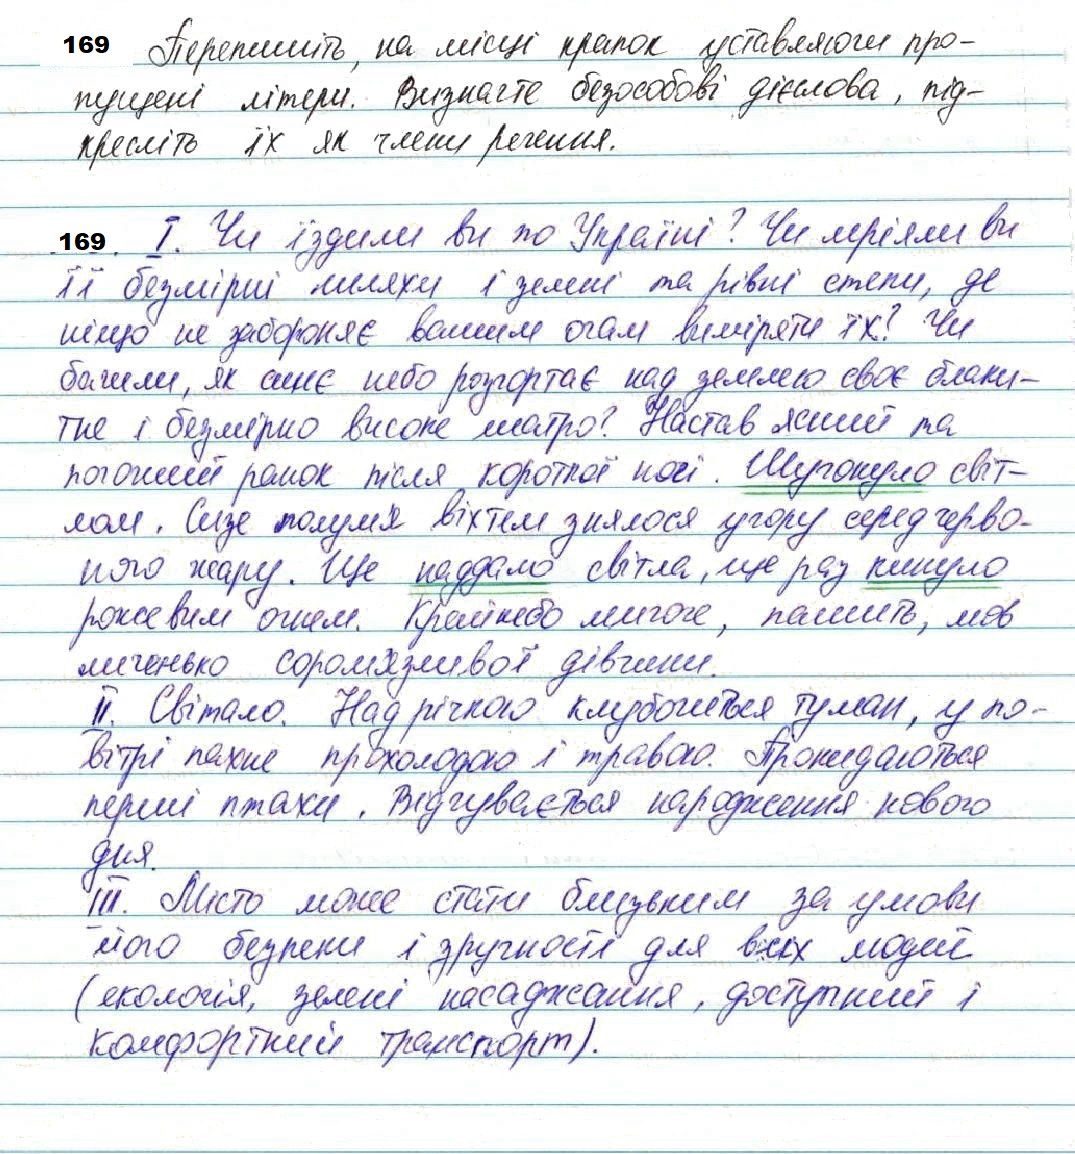 169 Перепишіть, на місці крапок уставляючи про-
пущені літери. Визначте безособові дієслова, під-
кресліть їх як члени речення.
169. І. Чи їздили ви по Україні? Чи міряли ви
її безмірні шляхи і зелені та рівні степи, де
ніщо не забороняє вашим очам виміряти їх? Чи
бачили, як синє небо розгортає над землею своє блаки-
тне і безмірно високе шатро? Настав ясний та
погожий ранок після короткої ночі. Шугонуло світ-
лом. Сизе полумя віхтем знялося угору серед черво-
ного жару. Ще наддало світла, ще раз кинуло
рожевим огнем. Крайнебо миготе, пашить, мов
личенько сором'язливої дівчини.
ІІ. Світало. Над річкою клубочиться туман, у по-
вітрі пахне прохолодою і травою. Прокидаються
перші птахи. Відчувається народження нового
дня.
ІІІ. Місто може стати близьким за умови
його безпеки і зручності для всіх людей
(екологія, зелені насадження, доступний і
комфортний транспорт).